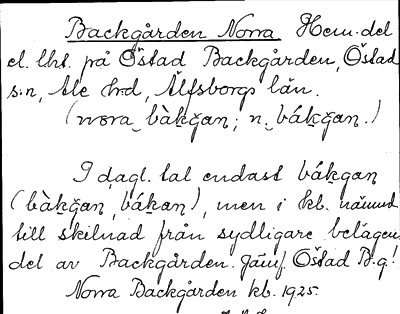 Backgården Norra Hem.del
el. lht. på Östad Backgården, Östad
s:n, Ale hrd, Älfsborgs län.
(nωra_bàk̬ǧaṇ; n_bák̬ǧaṇ.)
I dagl. tal endast bákgaṇ
(bàkǧaṇ, bákaṇ), men i kb. nämnd
till skilnad från sydligare belägen
del av Backgården. Jämf. Östad B.g!
Norra Backgården kb. 1925.